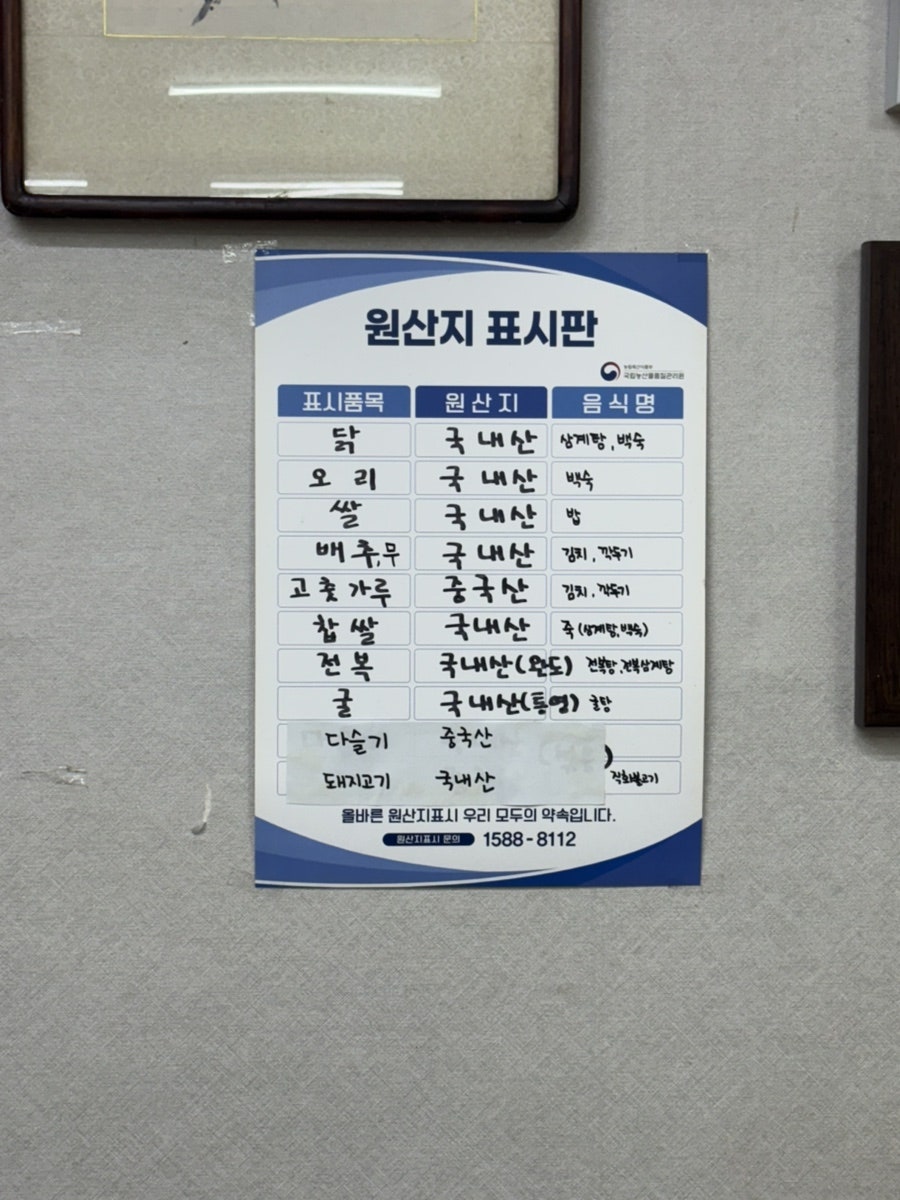 원산지 표시판
농림축산식품부
국립농산물품질관리원
표시품목 원산지 음식명
닭 국내산 삼계탕, 백숙
오리 국내산 백숙
쌀 국내산 밥
배추,무 국내산 김치, 깍두기
고춧가루 중국산 김치, 깍두기
찹쌀 국내산 죽(삼계탕,백숙)
전복 국내산(완도) 전복탕,전복삼계탕
굴 국내산(통영) 굴탕
다슬기 중국산 )
돼지고기 국내산 직화불고기
올바른 원산지표시 우리 모두의 약속입니다.
원산지표시 문의 1588-8112